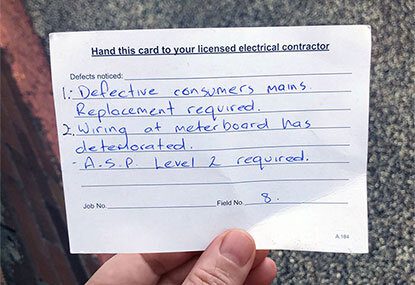 Hand this card to your licensed electrical contractor
Defects noticed:
1.- Defective consumers mains.
Replacement required.
2. Wiring at meterboard has
deteriorated.
- A.S.P. Level 2 required.
Job No. Field No. 8.
A.184